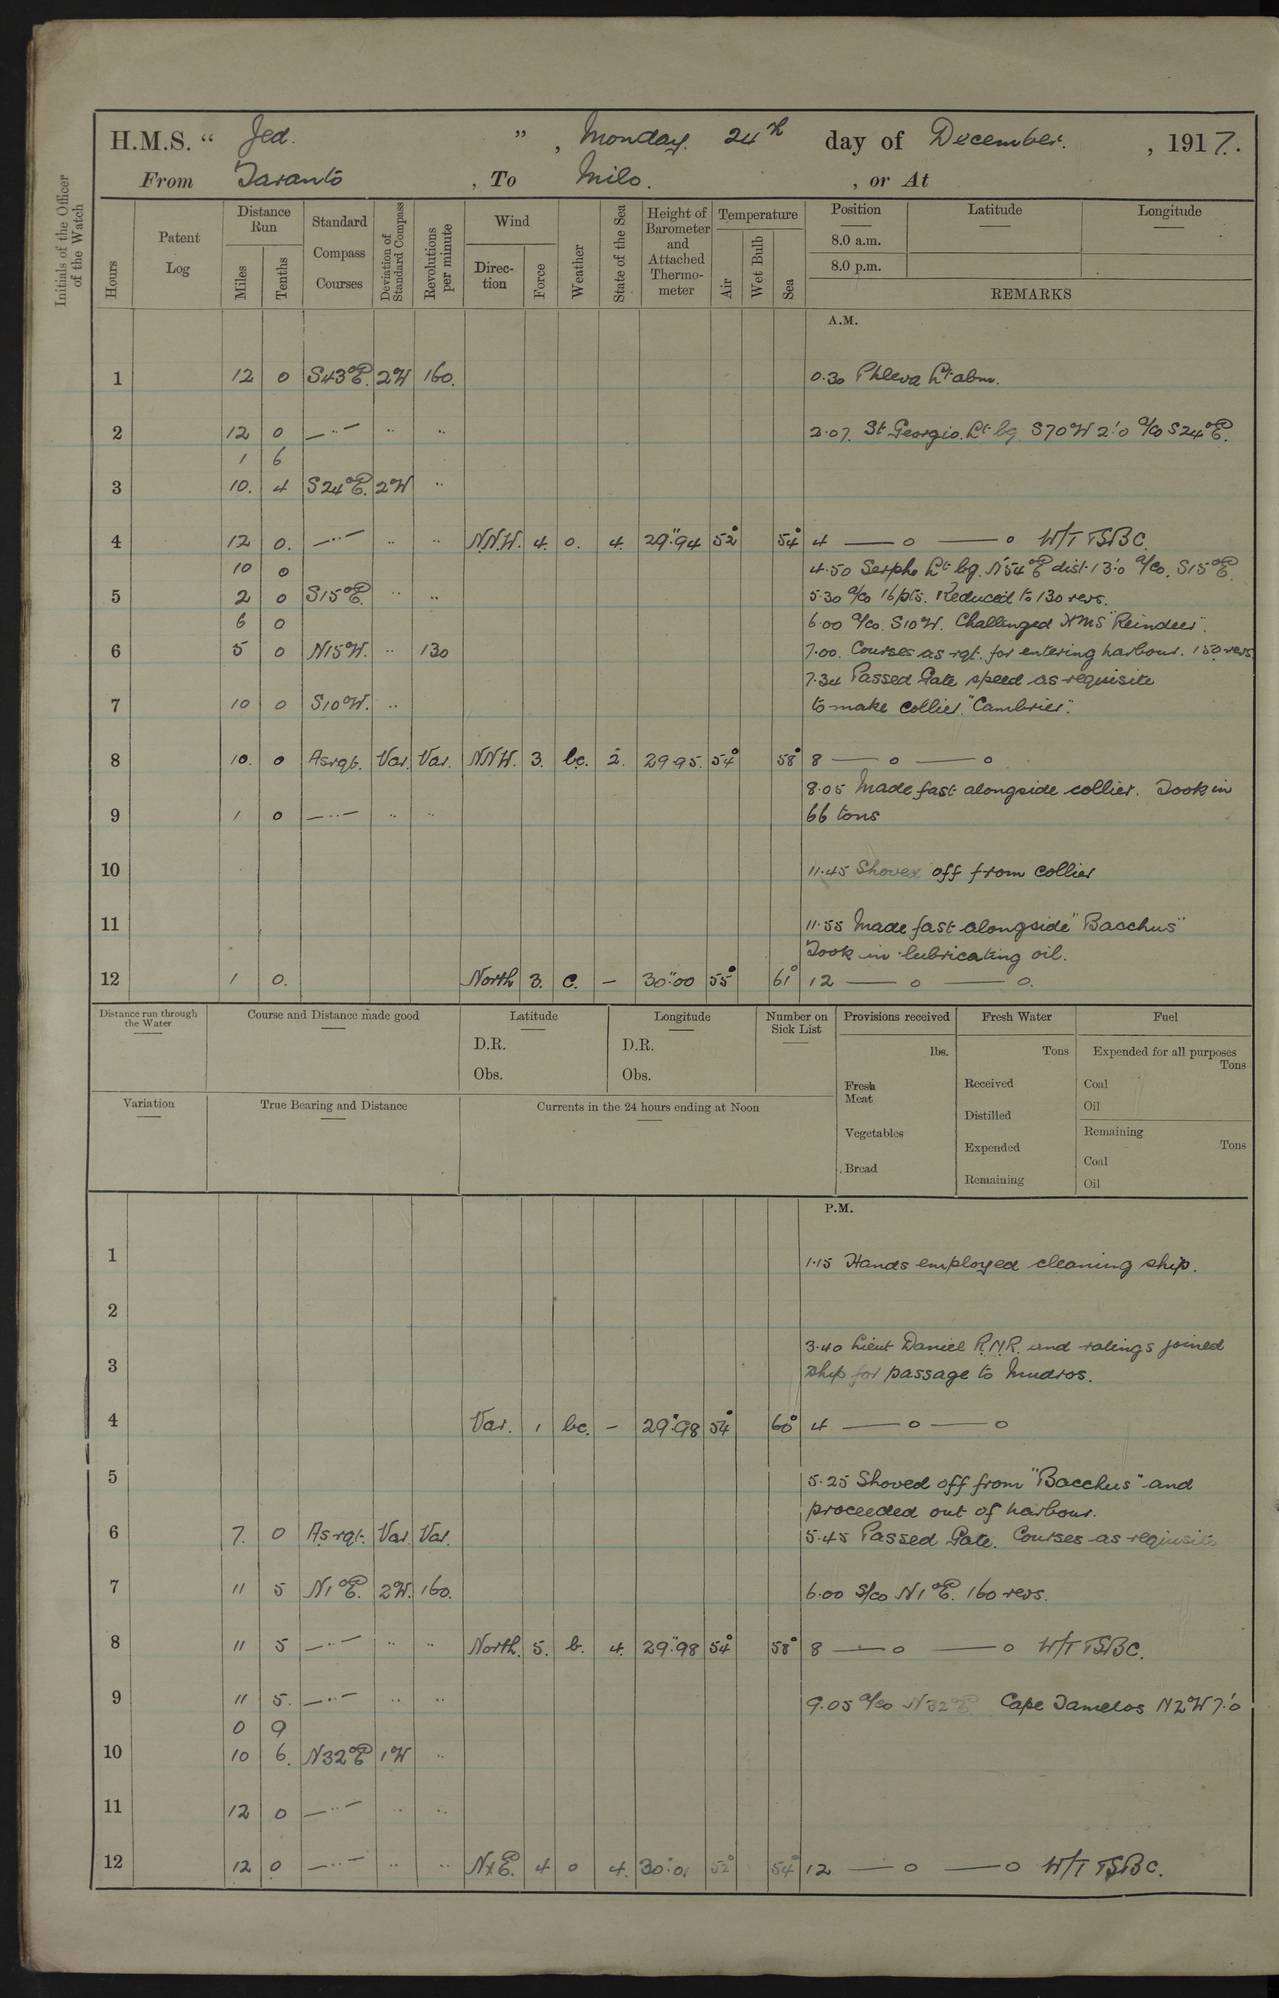 H.M.S. “ Jed. ” , Monday. 24th day of December. , 1917.
From Taranto , To Milo. , or At
Initials of the Officer of the Watch
Hours Patent Log Distance Run Miles Tenths Standard Compass Courses Deviation of Standard Compass Revolutions per minute Wind Direc-tion Force Weather State of the Sea Height of Barometer and Attached Thermo-meter Temperature Air Wet Bulb Sea Position Latitude Longitude
8.0 a.m.
8.0 p.m.
REMARKS
A.M.
1 12 0 S43°E. 2W 160. 0.30 Phleva Lt abm.
2 12 0 —··— ·· ·· 2.07. St Georgio. Lt bg S70°W 2'.0 a/co S24°E.
1 6
3 10. 4 S24°E. 2W ··
4 12 0. —··— ·· ·· N.N.W. 4. 0. 4. 29".94 52° 54° 4 — o — o W/T TSBC.
10 0 4.50 Serpho Lt bg. N54°E dist. 13'.0 a/co. S15°E.
5 2 0 S15°E. ·· ·· 5.30 a/co 16 pts. Reduced to 130 revs.
6 0 6.00 a/co. S10°W. Challenged HMS "Reindeer".
6 5 0 N15°W. ·· 130 7.00. Courses as rqt. for entering harbour. 150 revs.
7.34 Passed Gate speed as requisite
7 10 0 S10°W. ·· to make collier "Cambrier".
8 10. 0 As rqt. Var. Var. NNW. 3. bc. 2. 29.95. 54° 58° 8 — o — o
8.05 Made fast alongside collier. Took in
9 1 0 —··— ·· ·· 66 tons
10 11.45 Shoved off from collier
11 11.55 Made fast alongside "Bacchus"
Took in lubricating oil.
12 1 0. North 3. c. – 30".00 55° 61° 12 — o — o.
Distance run through the Water Course and Distance made good Latitude Longitude Number on Sick List Provisions received Fresh Water Fuel
D.R. D.R. lbs. Tons Expended for all purposes Tons
Obs. Obs. Fresh Meat Received Coal
Variation True Bearing and Distance Currents in the 24 hours ending at Noon Distilled Oil
Vegetables Expended Remaining Tons
Bread Remaining Coal
Oil
P.M.
1 1.15 Hands employed cleaning ship.
2
3.40 Lieut Daniel R.N.R. and ratings joined
3 ship for passage to Mudros.
4 Var. 1 bc. – 29".98 54° 60° 4 — o — o
5 5.25 Shoved off from "Bacchus" and
proceeded out of harbour.
6 7. 0 As rqt. Var. Var. 5.45 Passed Gate. Courses as requisite
7 11 5 N1°E. 2W. 160. 6.00 S/co N1°E. 160 revs.
8 11 5 —··— ·· ·· North. 5. b. 4. 29".98 54° 58° 8 — o — o W/T TSBC.
9 11 5. —··— ·· ·· 9.05 a/co N32°E Cape Tamelos N2W 7'.0
0 9
10 10 6. N32°E 1W ··
11 12 0 —··— ·· ··
12 12 0 —··— ·· ·· NxE. 4 0 4. 30".01 52° 54° 12 — o — o W/T TSBC.